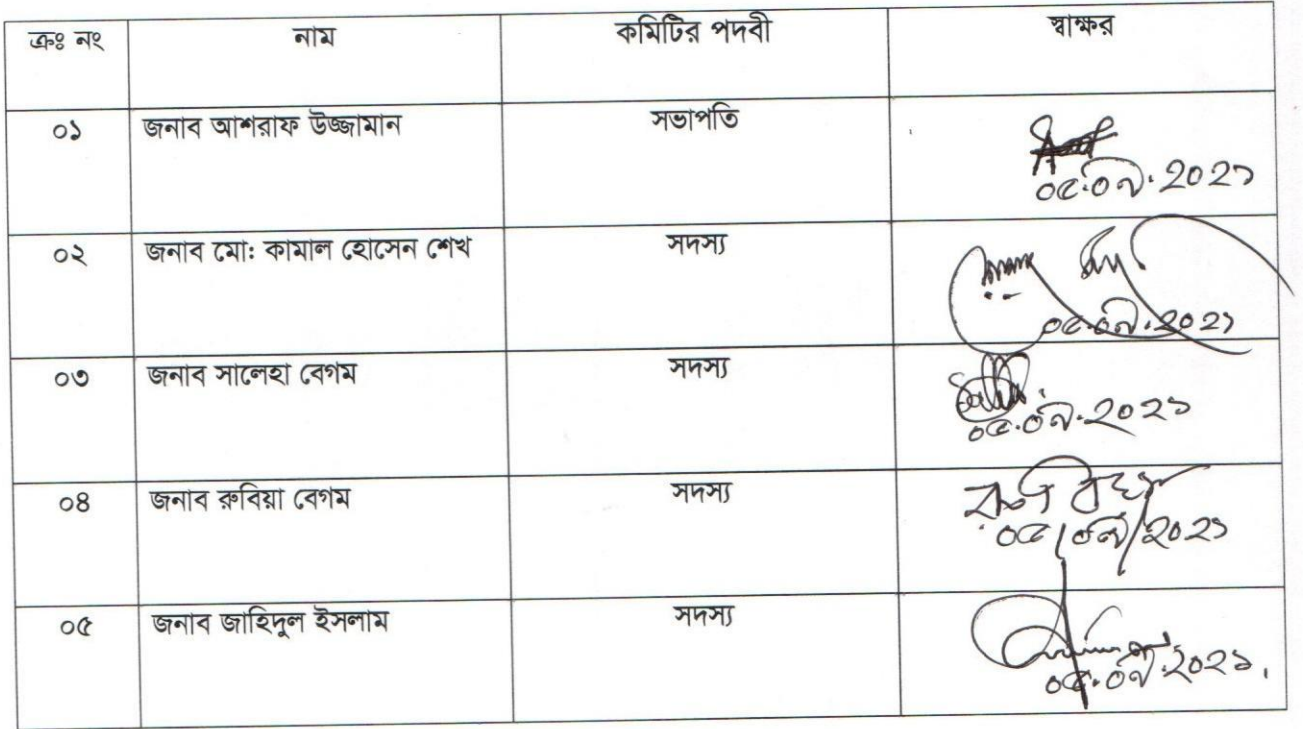 ক্রঃ নং নাম কমিটির পদবী স্বাক্ষর
০১ জনাব আশরাফ উজ্জামান সভাপতি
০৫.০৯.২০২১
০২ জনাব মো: কামাল হোসেন শেখ সদস্য
০৫.০৯.২০২১
০৩ জনাব সালেহা বেগম সদস্য
০৫.০৯.২০২১
০৪ জনাব রুবিয়া বেগম সদস্য
০৫/০৯/২০২১
০৫ জনাব জাহিদুল ইসলাম সদস্য
০৫.০৯.২০২১.